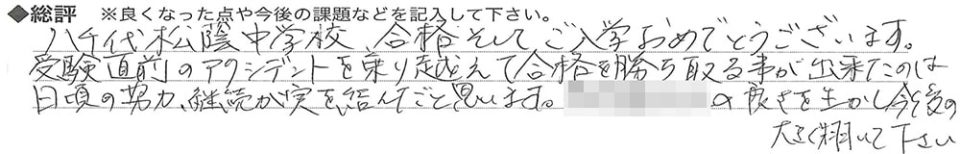 ◆総評 ※良くなった点や今後の課題などを記入して下さい。
八千代松陰中学校、合格そしてご入学おめでとうございます。
受験直前のアクシデントを乗り越えて合格を勝ち取る事が出来たのは
日頃の努力、継続が実を結んだと思います。 の良さを生かし今後の
大きく翔いて下さい